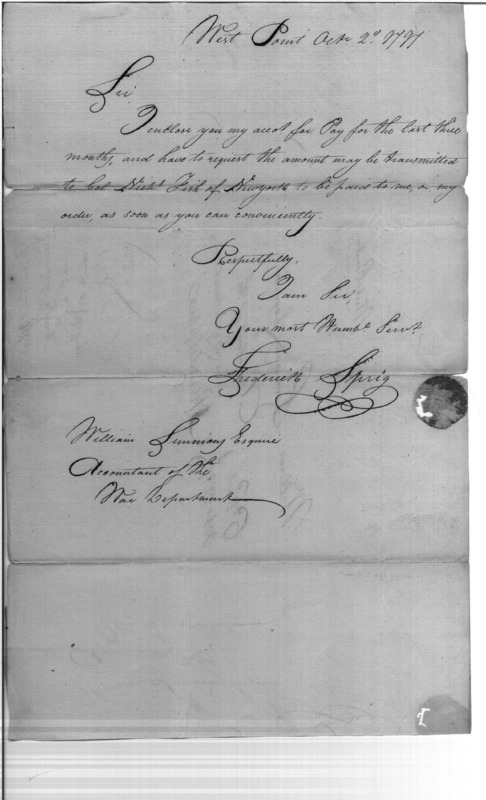 West Point Octr 2d 1797
Sir
I enclose you my acct for Pay for the last three
months, and have to request the amount may be transmitted
to Col Nichs Fish of Newyork to be paid to me, or my
order, as soon as you can conveniently.
Respectfully,
I am Sir
Your most Humbe Servt
Frederick Sprig
William Simmons Esquire
Accountant of the
War Department